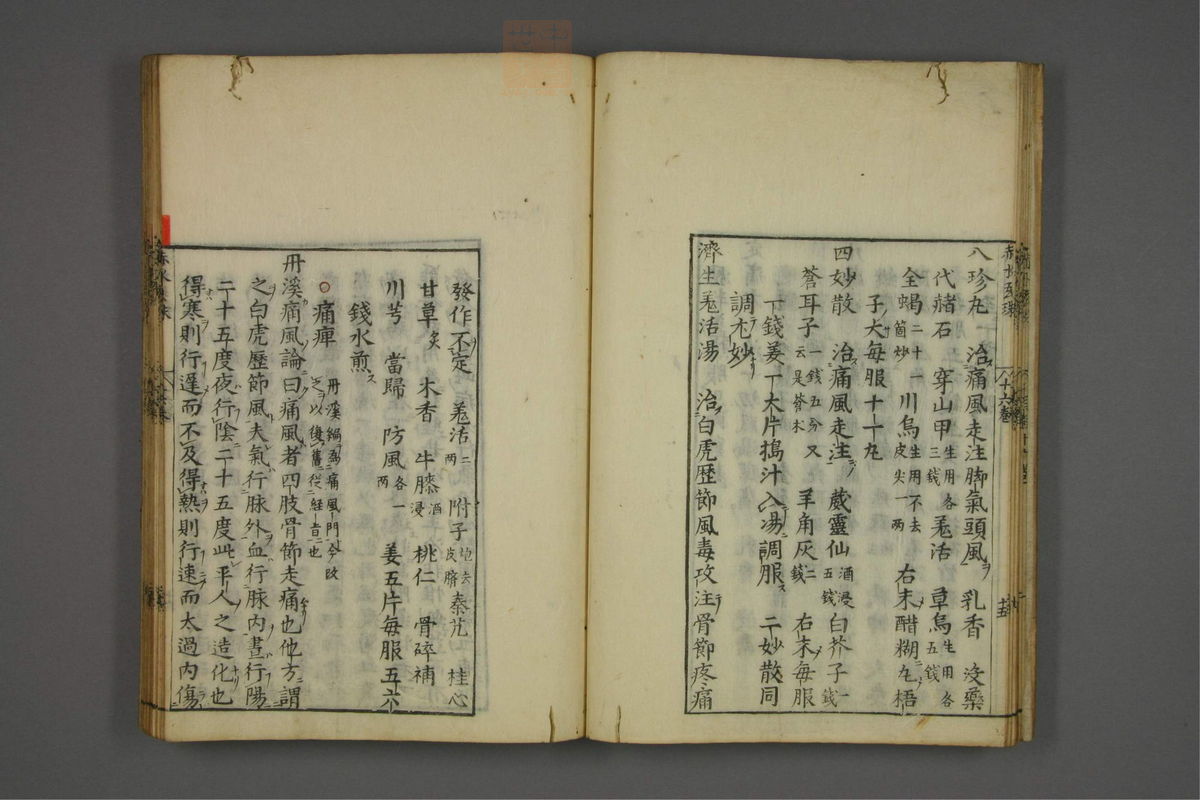 八珍丸　治痛風走注脚氣頭風　乳香　没藥
代赭石　穿山甲生用各三錢　羌活　草烏生用各五錢
全蝎二十一箇炒　川烏生用不去皮尖一两　右末醋糊丸梧
子大每服十一丸
四妙散　治痛風走注　葳靈仙酒浸五錢　白芥子一錢
蒼耳子一錢五分又云是蒼术　羊角灰二錢　右末每服
一錢姜一大片搗汁入湯調服　二妙散同
調尤妙
濟生羌活湯　治白虎歷節風毒攻注骨節疼痛
發作不定　羌活二两　附子炮去皮臍　秦艽　桂心
甘草炙　木香　牛膝酒浸　桃仁　骨碎補
川芎　當歸　防風各一两　姜五片每服五六
錢水煎
○痛痺　丹溪編爲痛風門今改之以復舊從經旨也
丹溪痛風論曰痛風者四肢骨節走痛也他方謂
之白虎歷節風夫氣行脉外血行脉内晝行陽
二十五度夜行陰二十五度此平人之造化也
得寒則行遲而不及得熱則行速而太過内傷